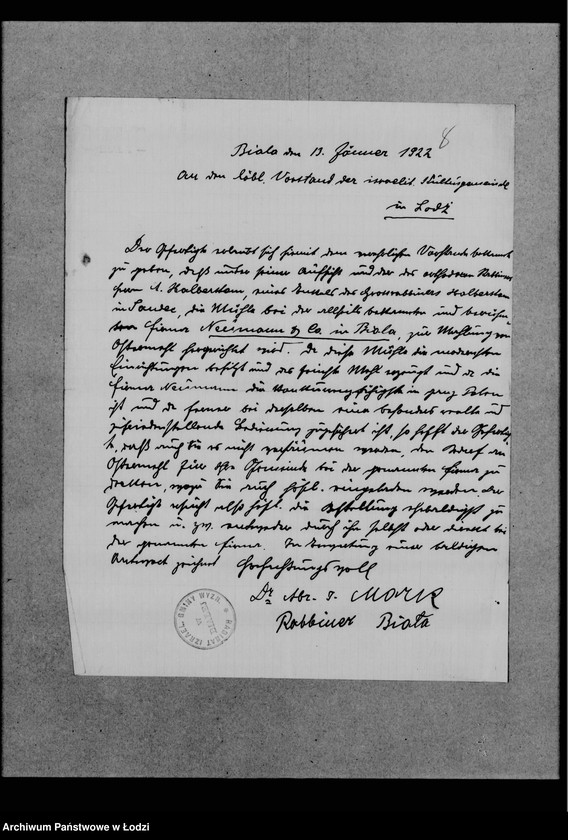 8
Biala den 13. Jänner 1922
An den löbl. Vorstand der israelit. Kultusgemeinde
in Lodz
Der Gefertigte erlaubt sich hiemit dem Vorstande bekannt
zu geben, daß unter seiner Aufsicht und der des orthodoxen Rabbiners
Herrn A. Halberstam, eines Enkels des Grossrabbiners Halberstam
in Sandec, die Mühle bei der allseits bekannten und
Firma Neumann & Co. in Biala, zu Mahlung von
Ostermehl hergerichtet wird. Da diese Mühle die modernsten
Einrichtungen besitzt und das feinste Mehl erzeugt und da die
Firma Neumann die in ganz Polen
ist und da ferner bei derselben eine besonders und
zufriedenstellende Bedienung ist, so hofft der Gefertigte
, daß auch Sie es nicht werden, den Bedarf an
Ostermehl für Ihre Gemeinde bei der genannten Firma zu
decken, wozu Sie auch höfl. eingeladen werden. Der
Gefertigte ersucht also höfl. die Bestellung ehebaldigst zu
machen u. zw. entweder durch ihn selbst oder direkt bei
der genannten Firma. In Erwartung einer baldigen
Antwort zeichnet Hochachtungsvoll
Dr Abr. J. Mark
Rabbiner Biała
RABINAT IZRAEL. GMINY WYZN.
Archiwum Państwowe w Łodzi